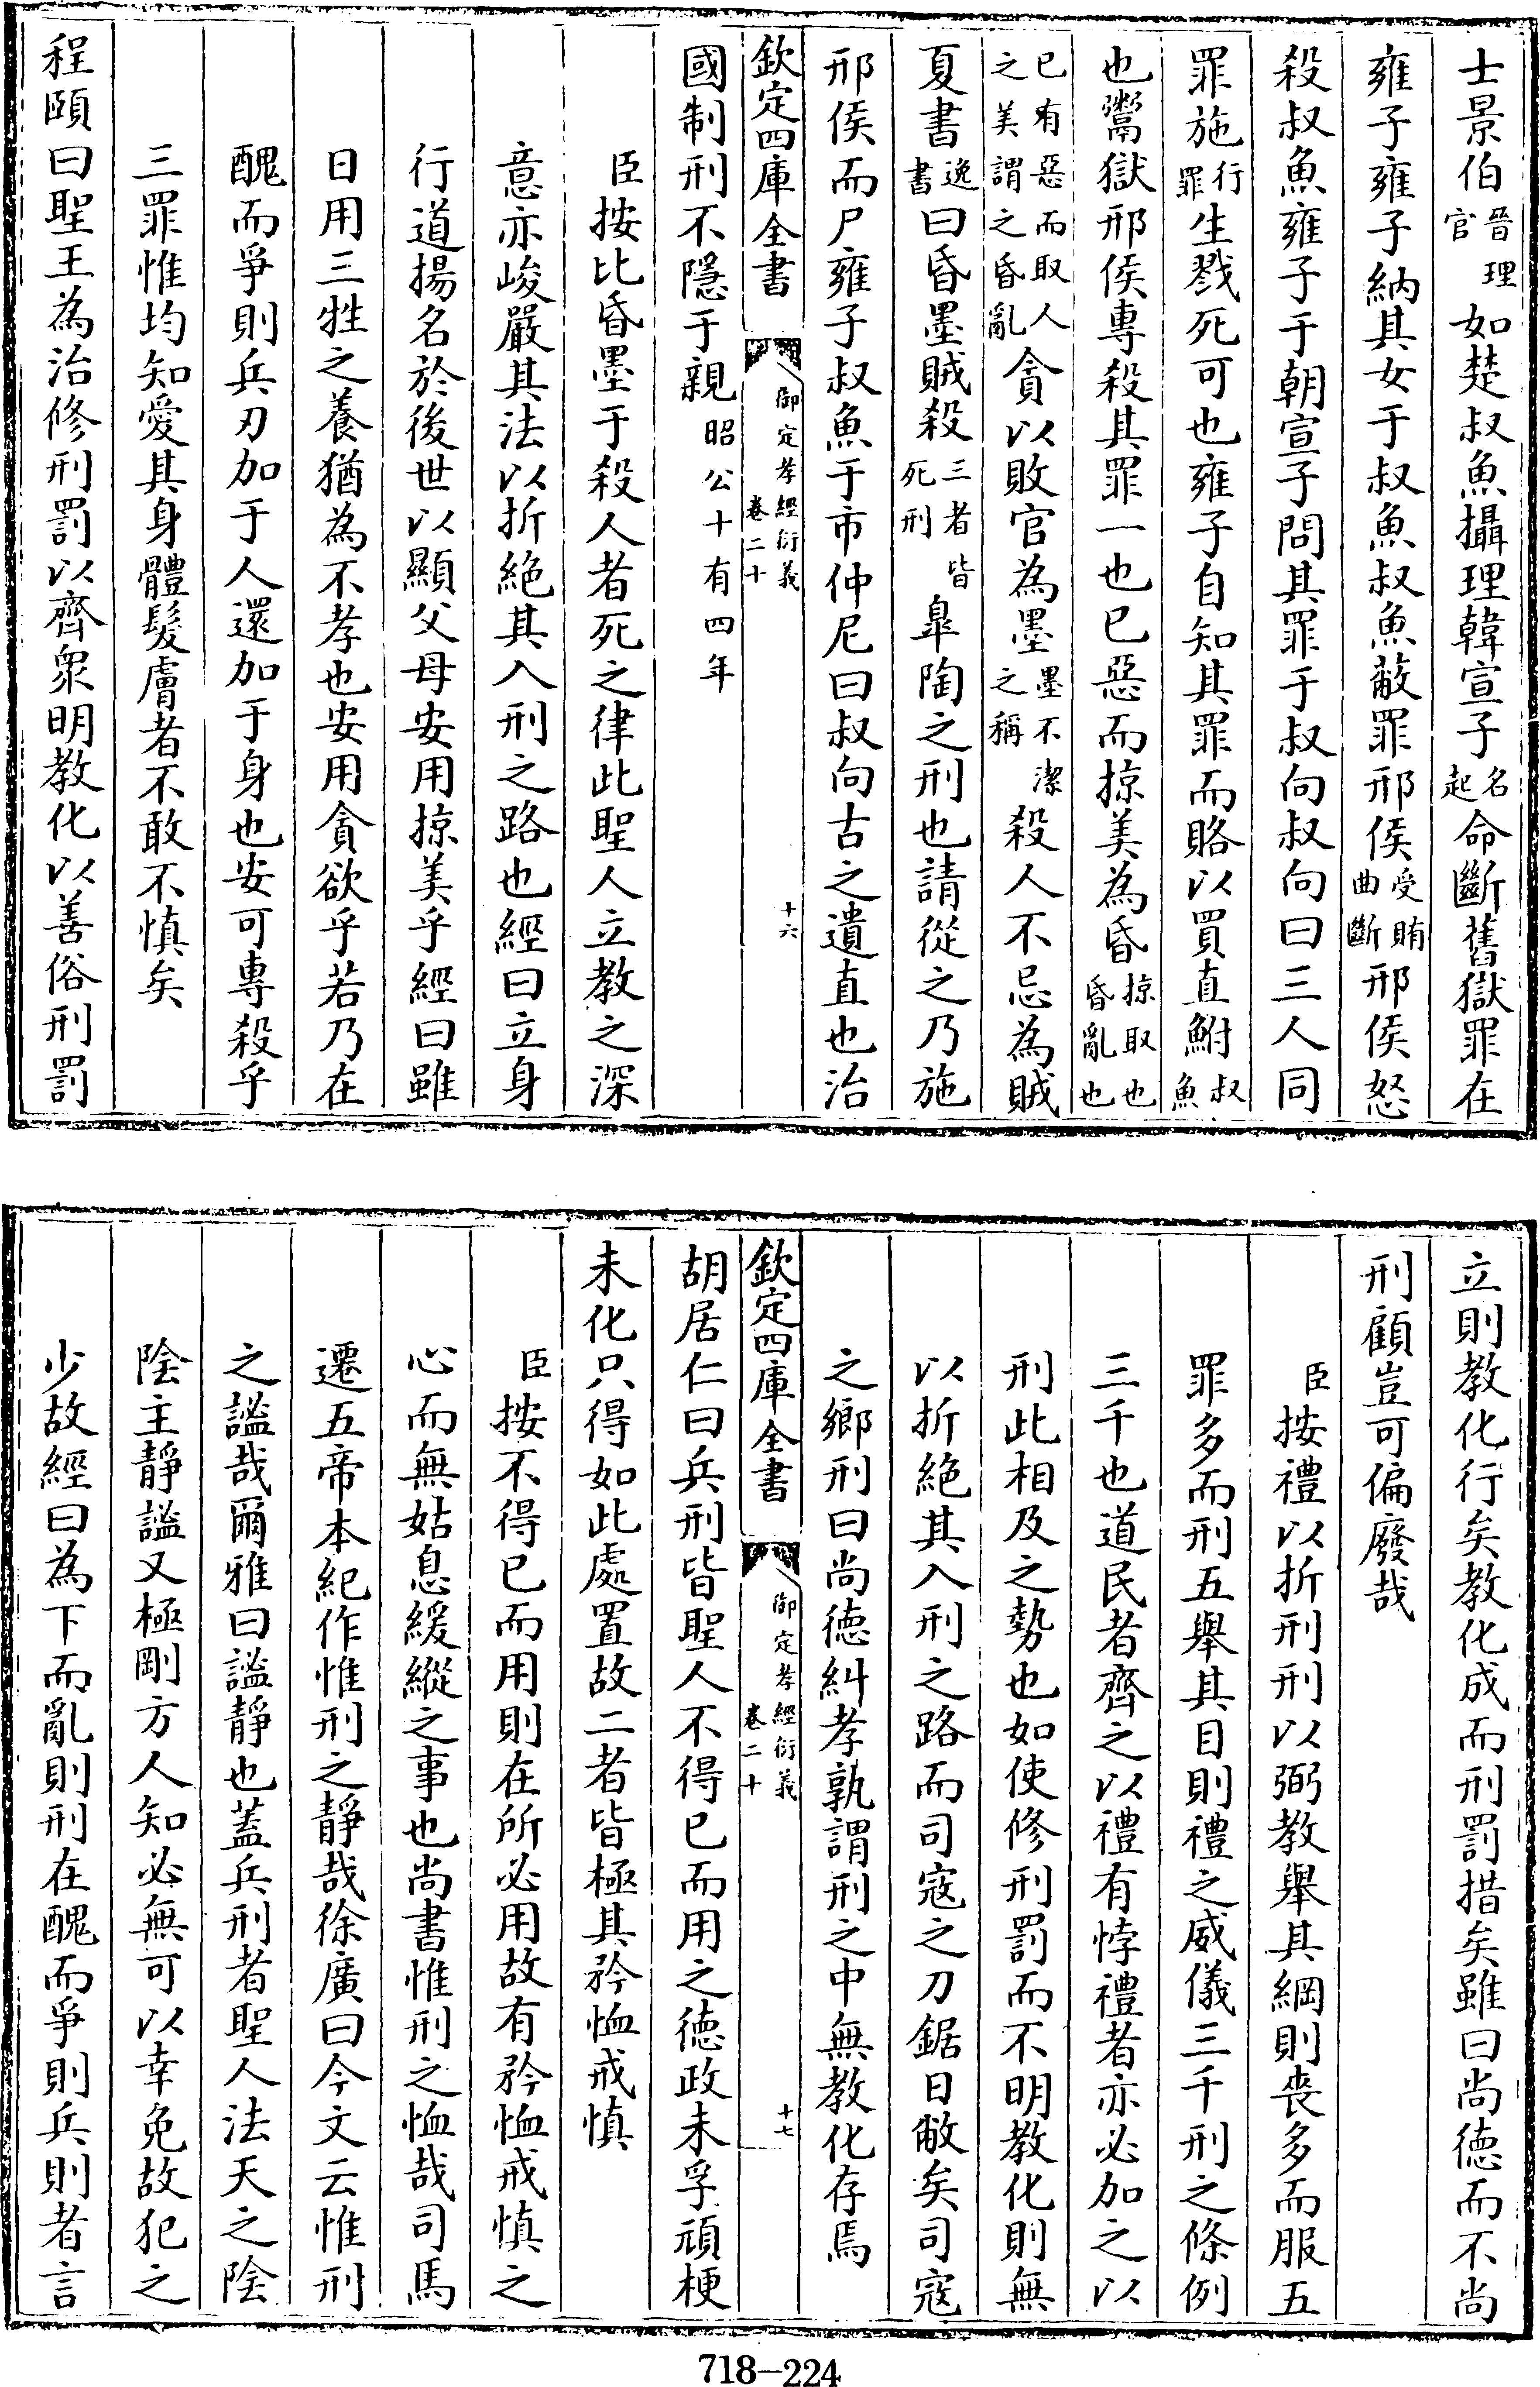 士景伯晉理官如楚叔魚攝理韓宣子名起命斷舊獄罪在
雍子雍子納其女于叔魚叔魚蔽罪邢侯受賄曲斷邢侯怒
殺叔魚雍子于朝宣子問其罪于叔向叔向曰三人同
罪施行罪生戮死可也雍子自知其罪而賂以買直鮒叔魚
也鬻獄邢侯專殺其罪一也已惡而掠美為昏掠取也昏亂也
已有惡而取人之美謂之昏亂貪以敗官為墨墨不潔之稱殺人不忌為賊
夏書逸書曰昏墨賊殺三者皆死刑臯陶之刑也請從之乃施
邢侯而尸雍子叔魚于市仲尼曰叔向古之遺直也治
欽定四庫全書 御定孝經衍義卷二十 十六
國制刑不隱于親昭公十有四年
臣按比昏墨于殺人者死之律此聖人立教之深
意亦峻嚴其法以折絶其入刑之路也經曰立身
行道揚名於後世以顯父母安用掠美乎經曰雖
日用三牲之養猶為不孝也安用貪欲乎若乃在
醜而爭則兵刃加于人還加于身也安可專殺乎
三罪惟均知愛其身體髮膚者不敢不慎矣
程頤曰聖王為治修刑罰以齊衆明教化以善俗刑罰
立則教化行矣教化成而刑罰措矣雖曰尚德而不尚
刑顧豈可偏廢哉
臣按禮以折刑刑以弼教舉其綱則喪多而服五
罪多而刑五舉其目則禮之威儀三千刑之條例
三千也道民者齊之以禮有悖禮者亦必加之以
刑此相及之勢也如使修刑罰而不明教化則無
以折絶其入刑之路而司寇之刀鋸日敝矣司寇
之鄉刑曰尚德糾孝孰謂刑之中無教化存焉
欽定四庫全書 御定孝經衍義卷二十 十七
胡居仁曰兵刑皆聖人不得已而用之德政未孚頑梗
未化只得如此處置故二者皆極其矜恤戒慎
臣按不得已而用則在所必用故有矜恤戒慎之
心而無姑息緩縱之事也尚書惟刑之恤哉司馬
遷五帝本紀作惟刑之靜哉徐廣曰今文云惟刑
之謐哉爾雅曰謐靜也蓋兵刑者聖人法天之陰
陰主靜謐又極剛方人知必無可以幸免故犯之
少故經曰為下而亂則刑在醜而爭則兵則者言
718-224